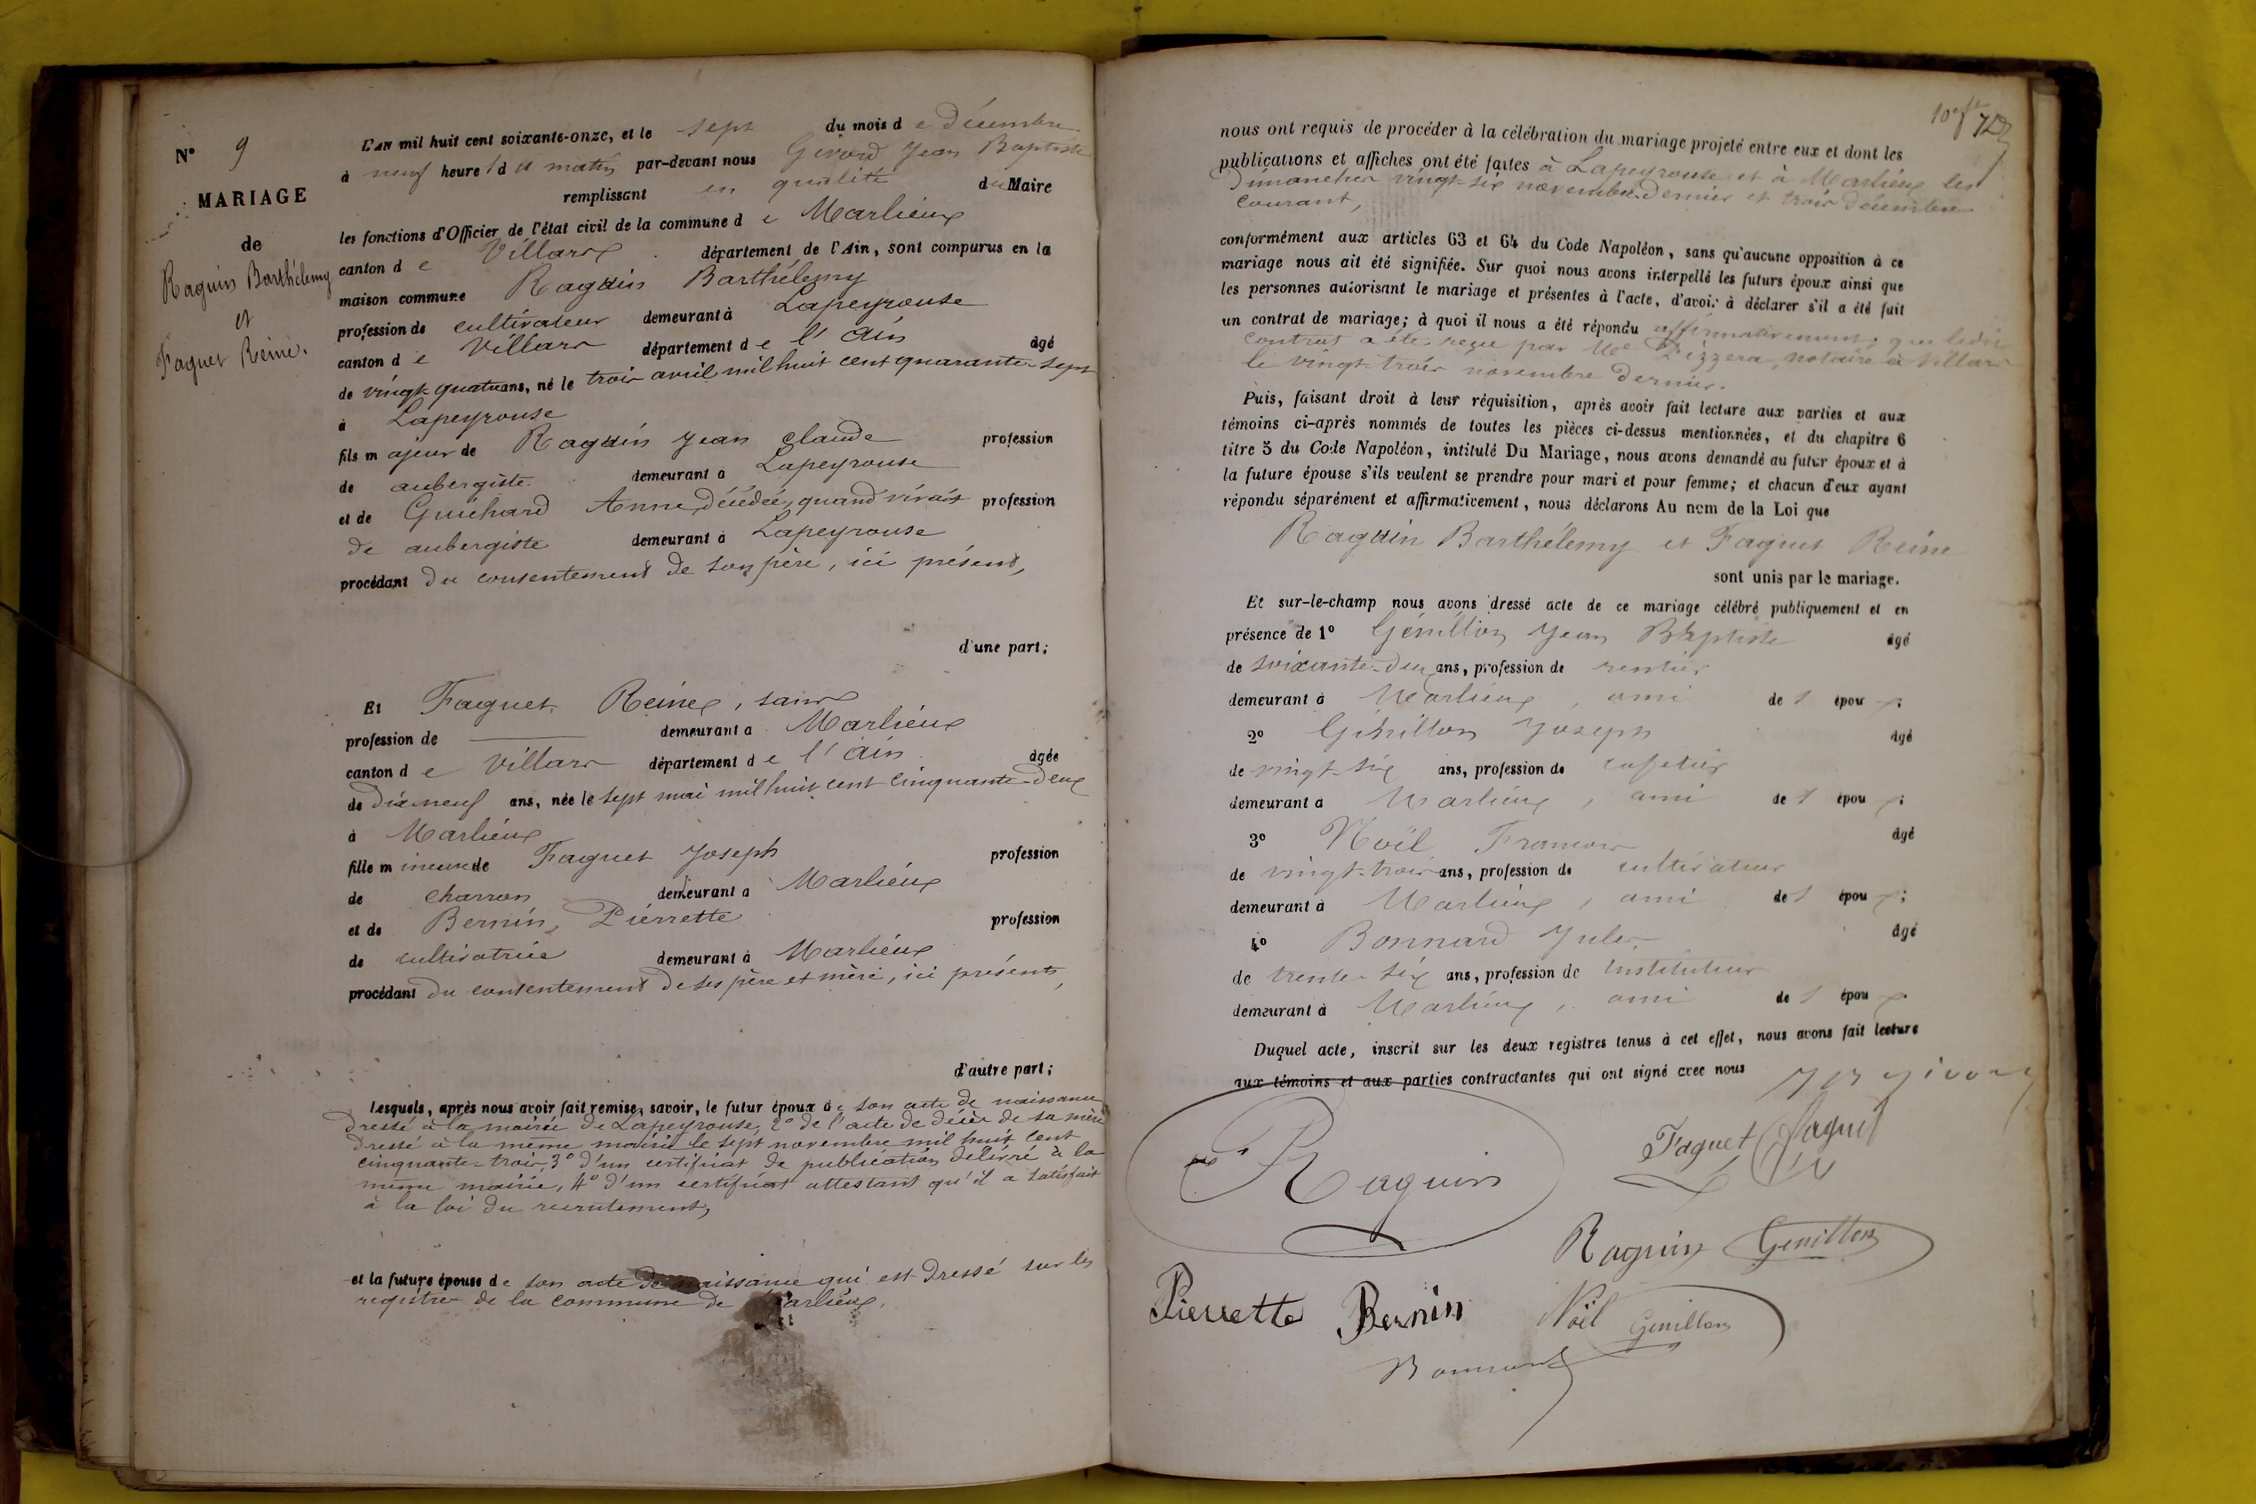 N° 9
MARIAGE
de
Raguin Barthélemy
et
Faguet Reine.
L'an mil huit cent soixante-onze, et le sept du mois de décembre
à neuf heure s du matin par-devant nous Givord Jean Baptiste
remplissant en qualité du Maire
les fonctions d'Officier de l'état civil de la commune de Marlieux
canton de Villars département de l'Ain, sont comparus en la
maison commune Raguin Barthélemy
profession de cultivateur demeurant à Lapeyrouse
canton de Villars département de l'Ain âgé
de vingt quatre ans, né le trois avril mil huit cent quarante-sept
à Lapeyrouse
fils majeur de Raguin Jean Claude profession
de aubergiste demeurant à Lapeyrouse
et de Guichard Anne, décédée, quand vivait profession
de aubergiste demeurant à Lapeyrouse
procédant du consentement de son père, ici présent,
d'une part;
Et Faguet Reine, sans
profession de demeurant à Marlieux
canton de Villars département de l'Ain âgée
de dix neuf ans, née le sept mai mil huit cent cinquante-deux
à Marlieux
fille mineure de Faguet Joseph profession
de charron demeurant à Marlieux
et de Bernin, Pierrette profession
de cultivatrice demeurant à Marlieux
procédant du consentement de ses père et mère, ici présents,
d'autre part;
Lesquels, après nous avoir fait remise, savoir, le futur époux de son acte de naissance
dressé à la mairie de Lapeyrouse, 2° de l'acte de décès de sa mère
dressé à la même mairie le sept novembre mil huit cent
cinquante-trois, 3° d'un certificat de publication délivré à la
même mairie, 4° d'un certificat attestant qu'il a satisfait
à la loi du recrutement,
et la future épouse de son acte de naissance qui est dressé sur les
registres de la commune de Marlieux.
nous ont requis de procéder à la célébration du mariage projeté entre eux et dont les
publications et affiches ont été faites à Lapeyrouse et à Marlieux les
dimanches vingt-six novembre dernier et trois décembre
courant,
conformément aux articles 63 et 64 du Code Napoléon, sans qu'aucune opposition à ce
mariage nous ait été signifiée. Sur quoi nous avons interpellé les futurs époux ainsi que
les personnes autorisant le mariage et présentes à l'acte, d'avoir à déclarer s'il a été fait
un contrat de mariage; à quoi il nous a été répondu affirmativement, que ledit
contrat a été reçu par Me Pizzera, notaire à Villars
le vingt-trois novembre dernier.
Puis, faisant droit à leur réquisition, après avoir fait lecture aux parties et aux
témoins ci-après nommés de toutes les pièces ci-dessus mentionnées, et du chapitre 6
titre 5 du Code Napoléon, intitulé Du Mariage, nous avons demandé au futur époux et à
la future épouse s'ils veulent se prendre pour mari et pour femme; et chacun d'eux ayant
répondu séparément et affirmativement, nous déclarons Au nom de la Loi que
Raguin Barthélemy et Faguet Reine
sont unis par le mariage.
Et sur-le-champ nous avons dressé acte de ce mariage célébré publiquement et en
présence de 1° Génillon Jean Baptiste âgé
de soixante-deux ans, profession de rentier
demeurant à Marlieux, ami de l'époux;
2° Génillon Joseph âgé
de vingt-six ans, profession de cafetier
demeurant à Marlieux, ami de l'époux;
3° Noël François âgé
de vingt-trois ans, profession de cultivateur
demeurant à Marlieux, ami de l'époux;
4° Bonnard Jules âgé
de trente-six ans, profession de instituteur
demeurant à Marlieux, ami de l'époux.
Duquel acte, inscrit sur les deux registres tenus à cet effet, nous avons fait lecture
aux témoins et aux parties contractantes qui ont signé avec nous
Raguin Faguet
Raguin Genillon
Pierrette Bernin Noël Genillon
Bonnard